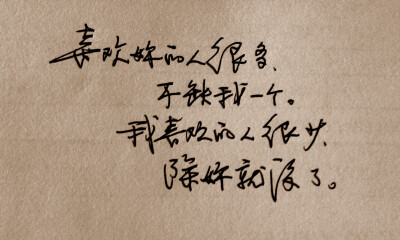 喜欢妳的人很多、
不缺我一个。
我喜欢的人很少、
除妳就没了。